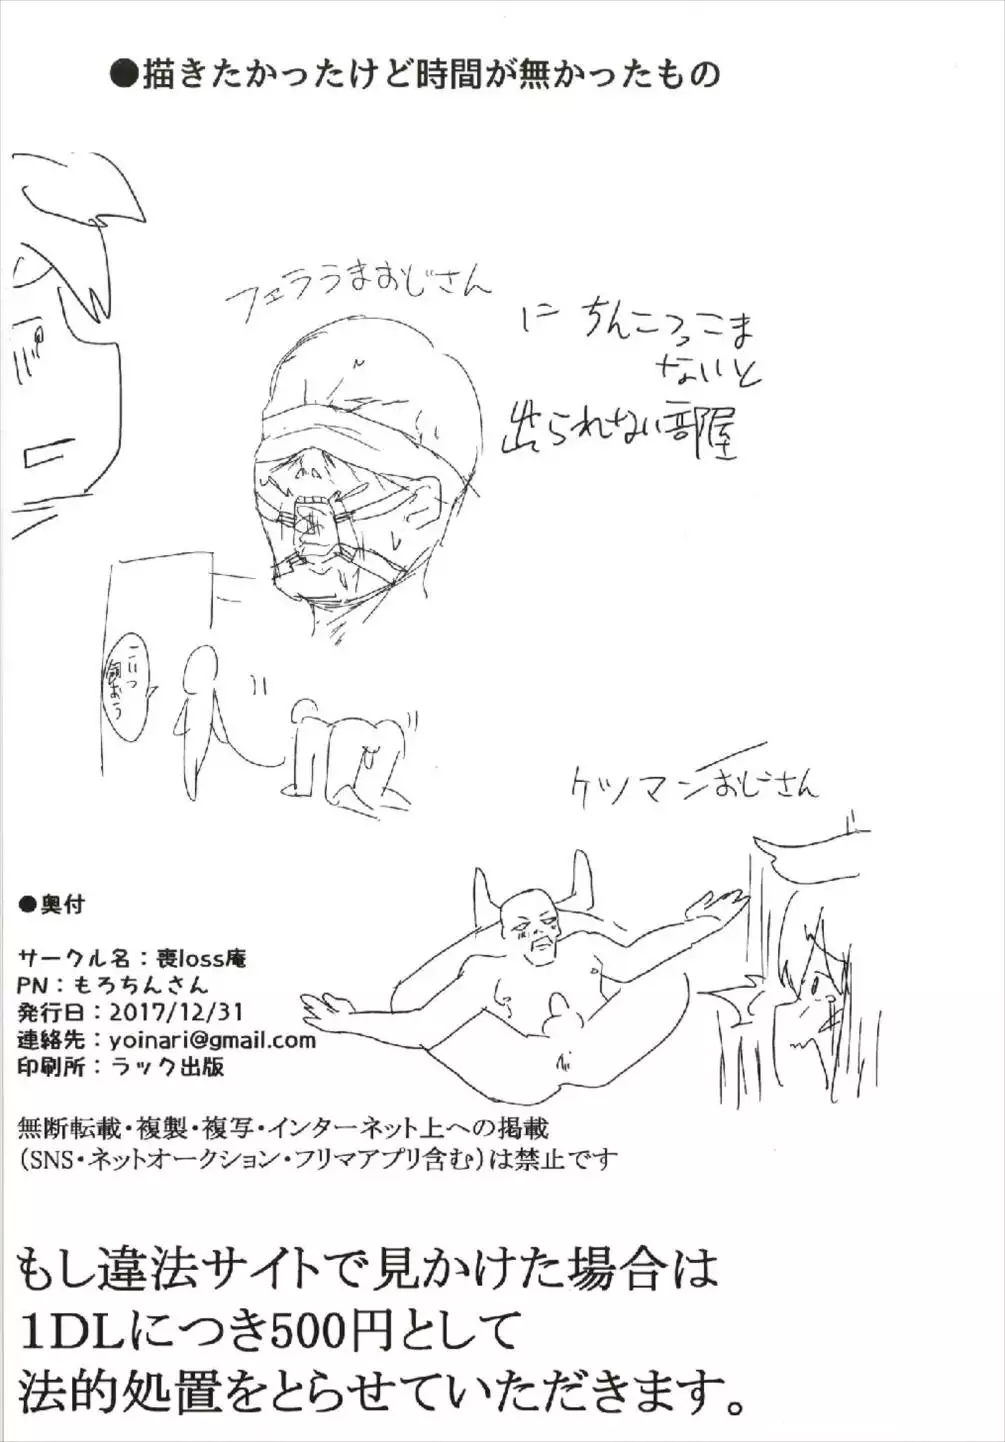 ●描きたかったけど時間が無かったもの
フェラうまおじさん
に ちんこつっこま
ないと
出られない部屋
こいつ
飼おう
ケツマンおじさん
●奥付
サークル名:喪loss庵
PN:もろちんさん
発行日:2017/12/31
連絡先:yoinari@gmail.com
印刷所:ラック出版
無断転載・複製・複写・インターネット上への掲載
(SNS・ネットオークション・フリマアプリ含む)は禁止です
もし違法サイトで見かけた場合は
1DLにつき500円として
法的処置をとらせていただきます。